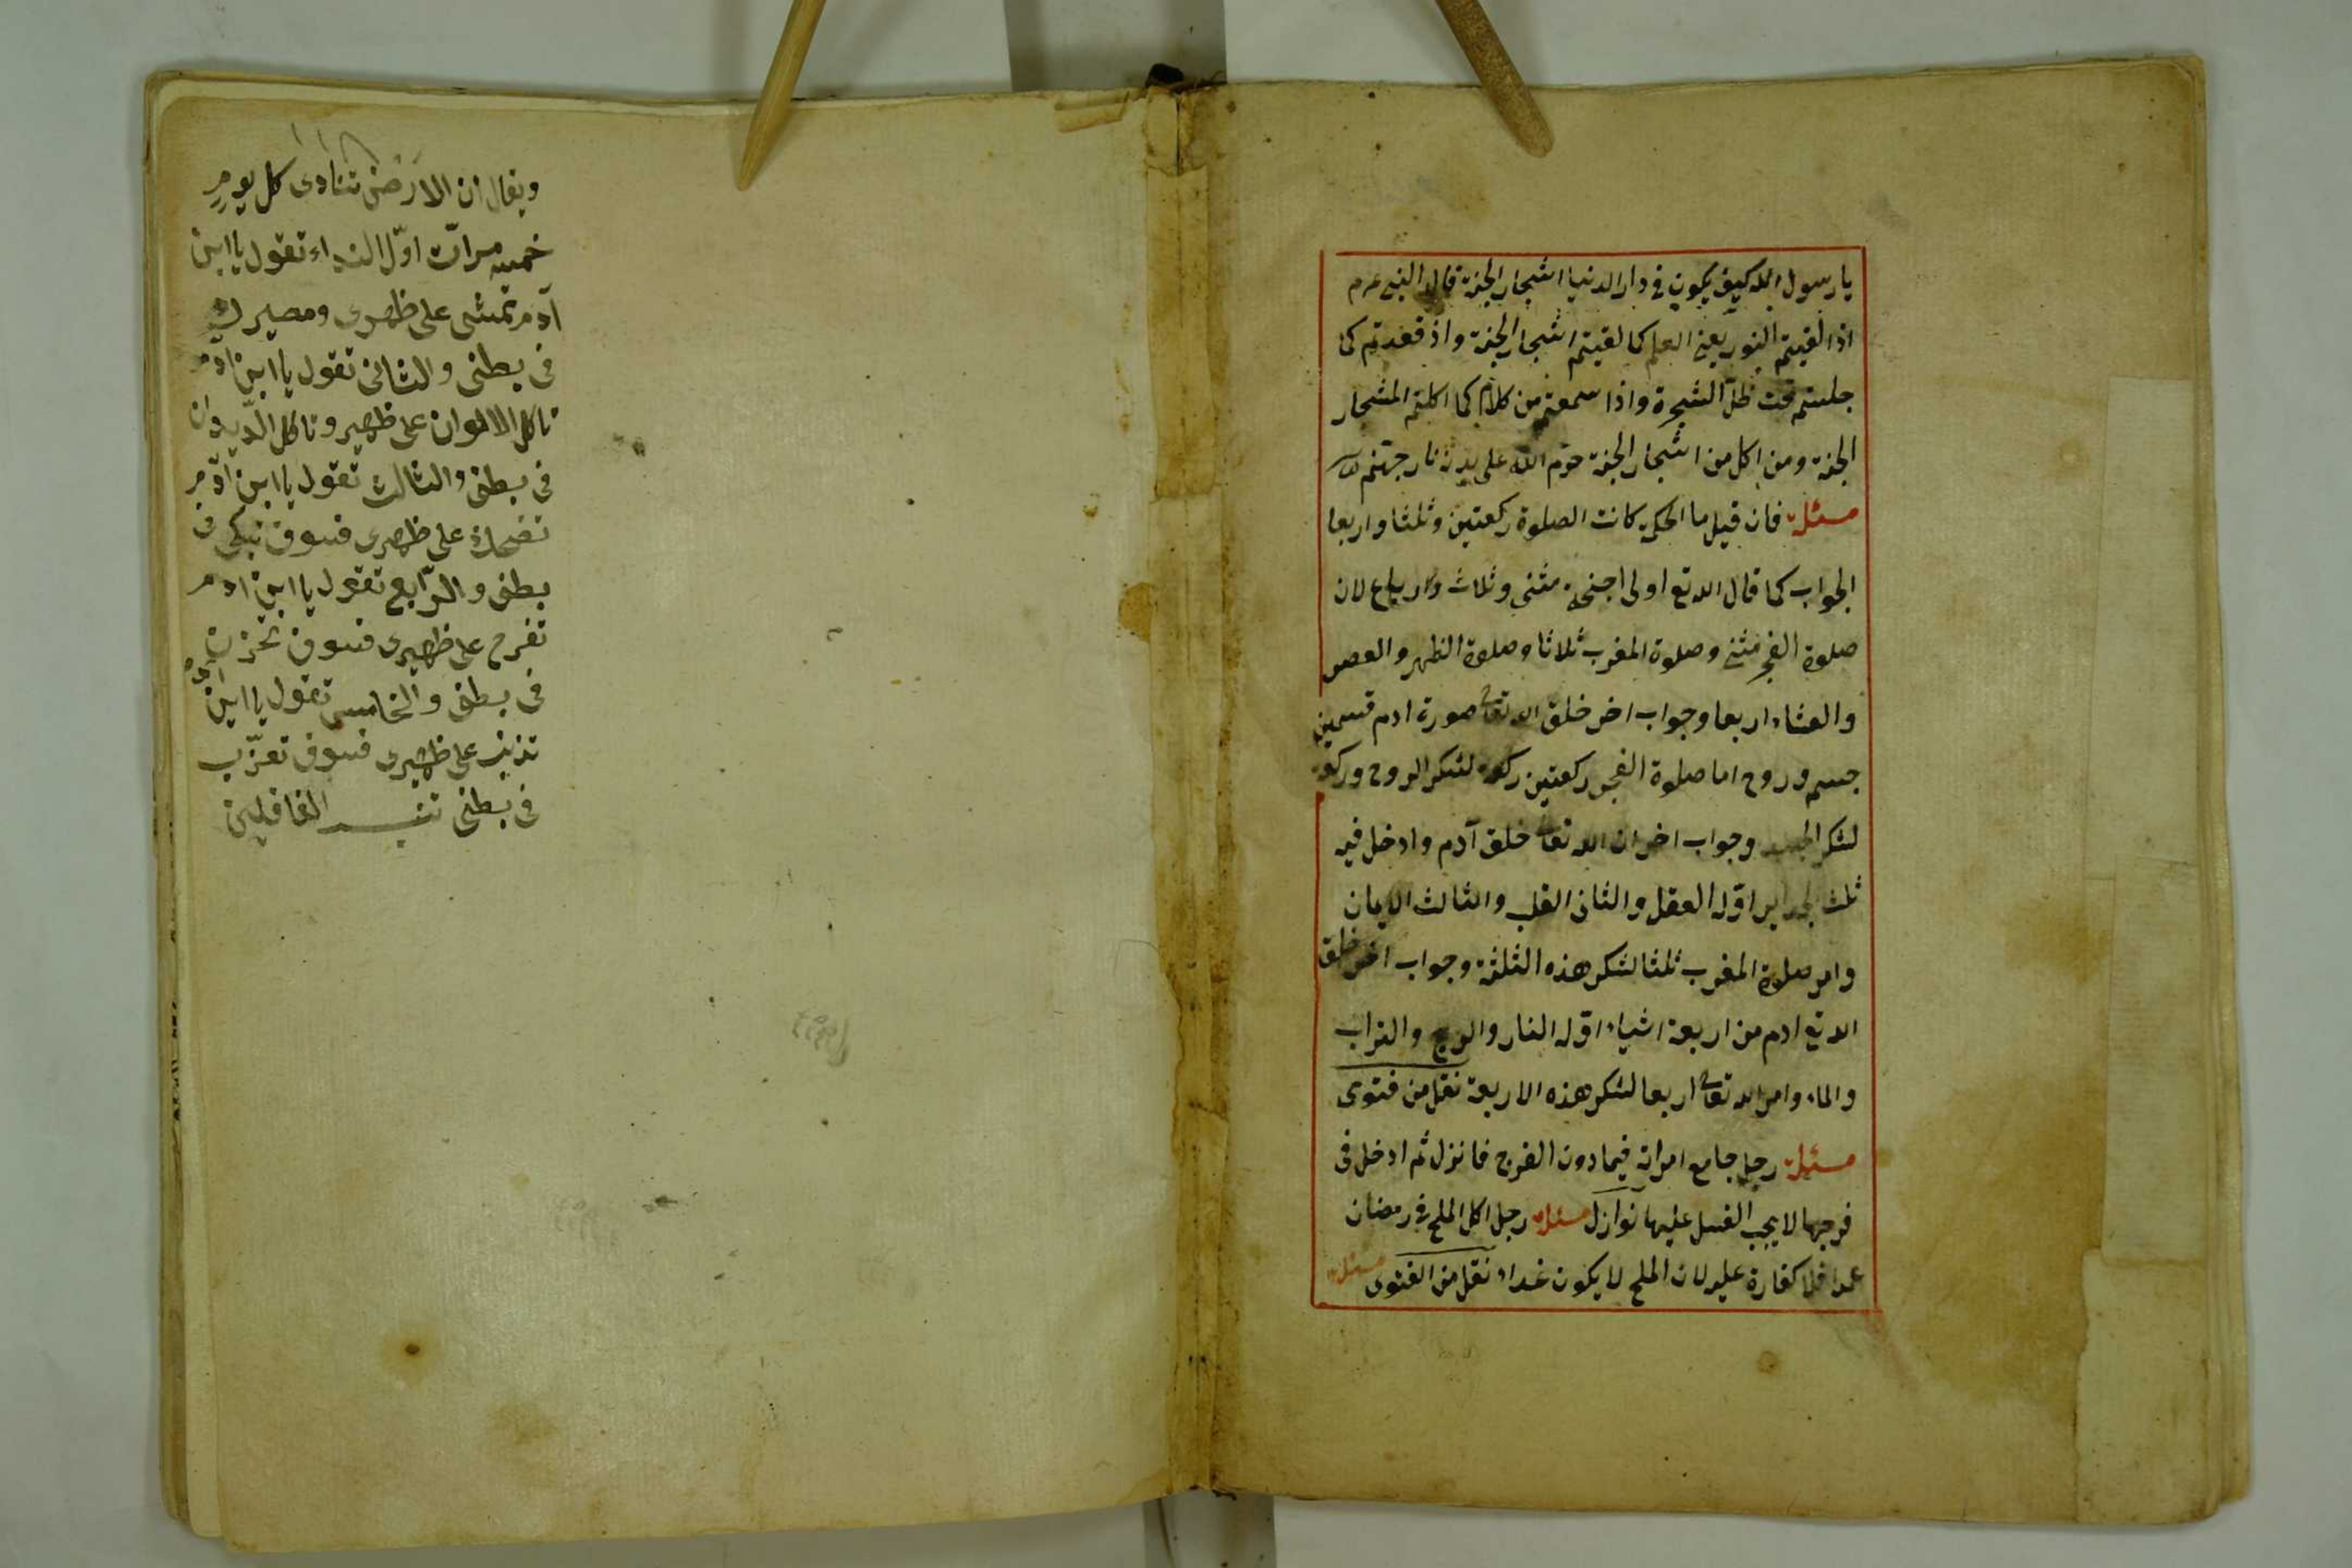 يا رسول الله كيف يكون في دار الدنيا اشجار الجنة قال النبي عم
اذا لقيتم النور يعني العلم كما لقيتم اشجار الجنة واذ قعدتم كما
جلستم تحت ظل الشجرة واذا سمعتم من كلام كما اكلتم المشجار
الجنة ومن اكل من اشجار الجنة حرم الله على بدنه نار جهنم
مسئلة فان قيل ما الحكمة كانت الصلوة ركعتين وثلثا واربعا
الجواب كما قال الله تع اولى اجنحة مثنى وثلاث ورباع لان
صلوة الفجر مثنى وصلوة المغرب ثلاثا وصلوة الظهر والعصر
والعشاء اربعا وجواب اخر خلق الله تعالى صورة ادم قسمين
جسم وروح اما صلوة الفجر ركعتين ركعة لشكر الروح وركعة
لشكر الجسد وجواب اخر ان الله تعالى خلق آدم وادخل فيه
ثلث اوله العقل والثانى القلب والثالث الايمان
وامر صلوة المغرب ثلثا لشكر هذه الثلثة وجواب اخر خلق
الله تع ادم من اربعة اشياء اوله النار والريح والتراب
والماء وامر الله تعالى اربعا لشكر هذه الاربعة نقل من فتوى
مسئلة رجل جامع امراته فيما دون الفرج فانزل ثم ادخل فى
فرجها لا يجب الغسل عليها نوازل مسئلة رجل اكل الملح في رمضان
عمدا فلا كفارة عليه لان الملح لا يكون غداء نقل من الفتوى مسئلة
ويقال ان الارض تنادى كل يوم
خمسه مرات اوّل النداء تقول يا ابن
آدم تمشى على ظهرى ومصيرك
فى بطنى والثانى تقول يا ابن ادم
تاكل الالوان على ظهرى وتاكل الديدان
فى بطنى والثالث تقول يا ابن ادم
تضحك على ظهرى فسوف تبكى فى
بطنى والرّابع تقول يا ابن ادم
تفرح على ظهرى فسوف تحزن
فى بطنى والخامس تقول يا ابن ادم
تذنب على ظهرى فسوف تعذّب
فى بطنى تنبيه الغافلين